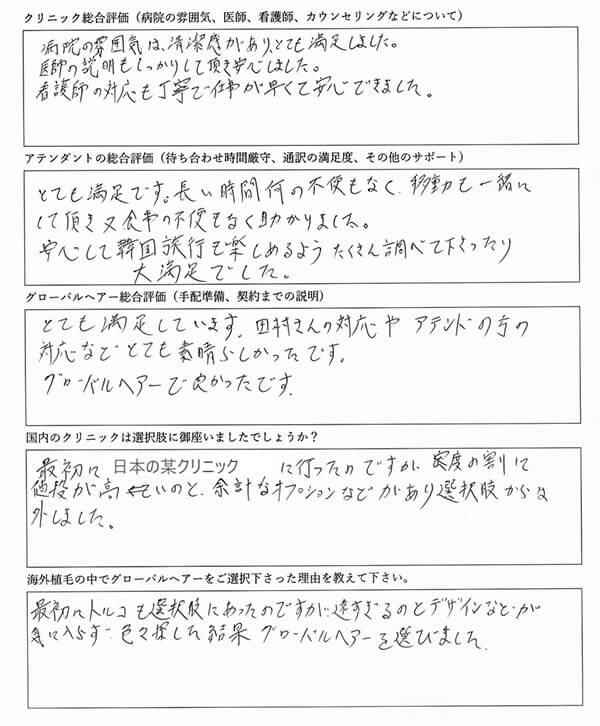 クリニック総合評価（病院の雰囲気、医師、看護師、カウンセリングなどについて）
病院の雰囲気は、清潔感があり、とても満足しました。
医師の説明もしっかりして頂き安心しました。
看護師の対応も丁寧で仕事が早くて安心できました。
アテンダントの総合評価（待ち合わせ時間厳守、通訳の満足度、その他のサポート）
とても満足です。長い時間何の不便もなく、移動も一緒に
して頂き又食事の不便もなく助かりました。
安心して韓国旅行も楽しめるよう たくさん調べて下さったり
大満足でした。
グローバルヘアー総合評価（手配準備、契約までの説明）
とても満足しています。田村さんの対応や アテンドの方の
対応など とても素晴らしかったです。
グローバルヘアーで良かったです。
国内のクリニックは選択肢に御座いましたでしょうか？
最初に 日本の某クリニック に行ったのですが、密度の割に
値段が高いのと、余計なオプションなどがあり選択肢からは
外しました。
海外植毛の中でグローバルヘアーをご選択下さった理由を教えて下さい。
最初にトルコも選択肢にあったのですが、遠すぎるのとデザインなどが
気に入らず、色々探した結果 グローバルヘアーを選びました。